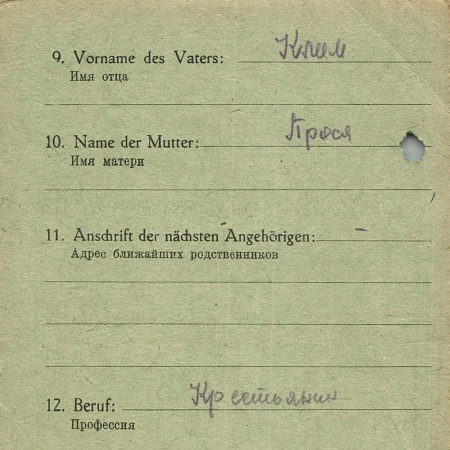 9. Vorname des Vaters: Клим
Имя отца
10. Name der Mutter: Прося
Имя матери
11. Anschrift der nächsten Angehörigen: –
Адрес ближайших родственников
12. Beruf: Крестьянин
Профессия